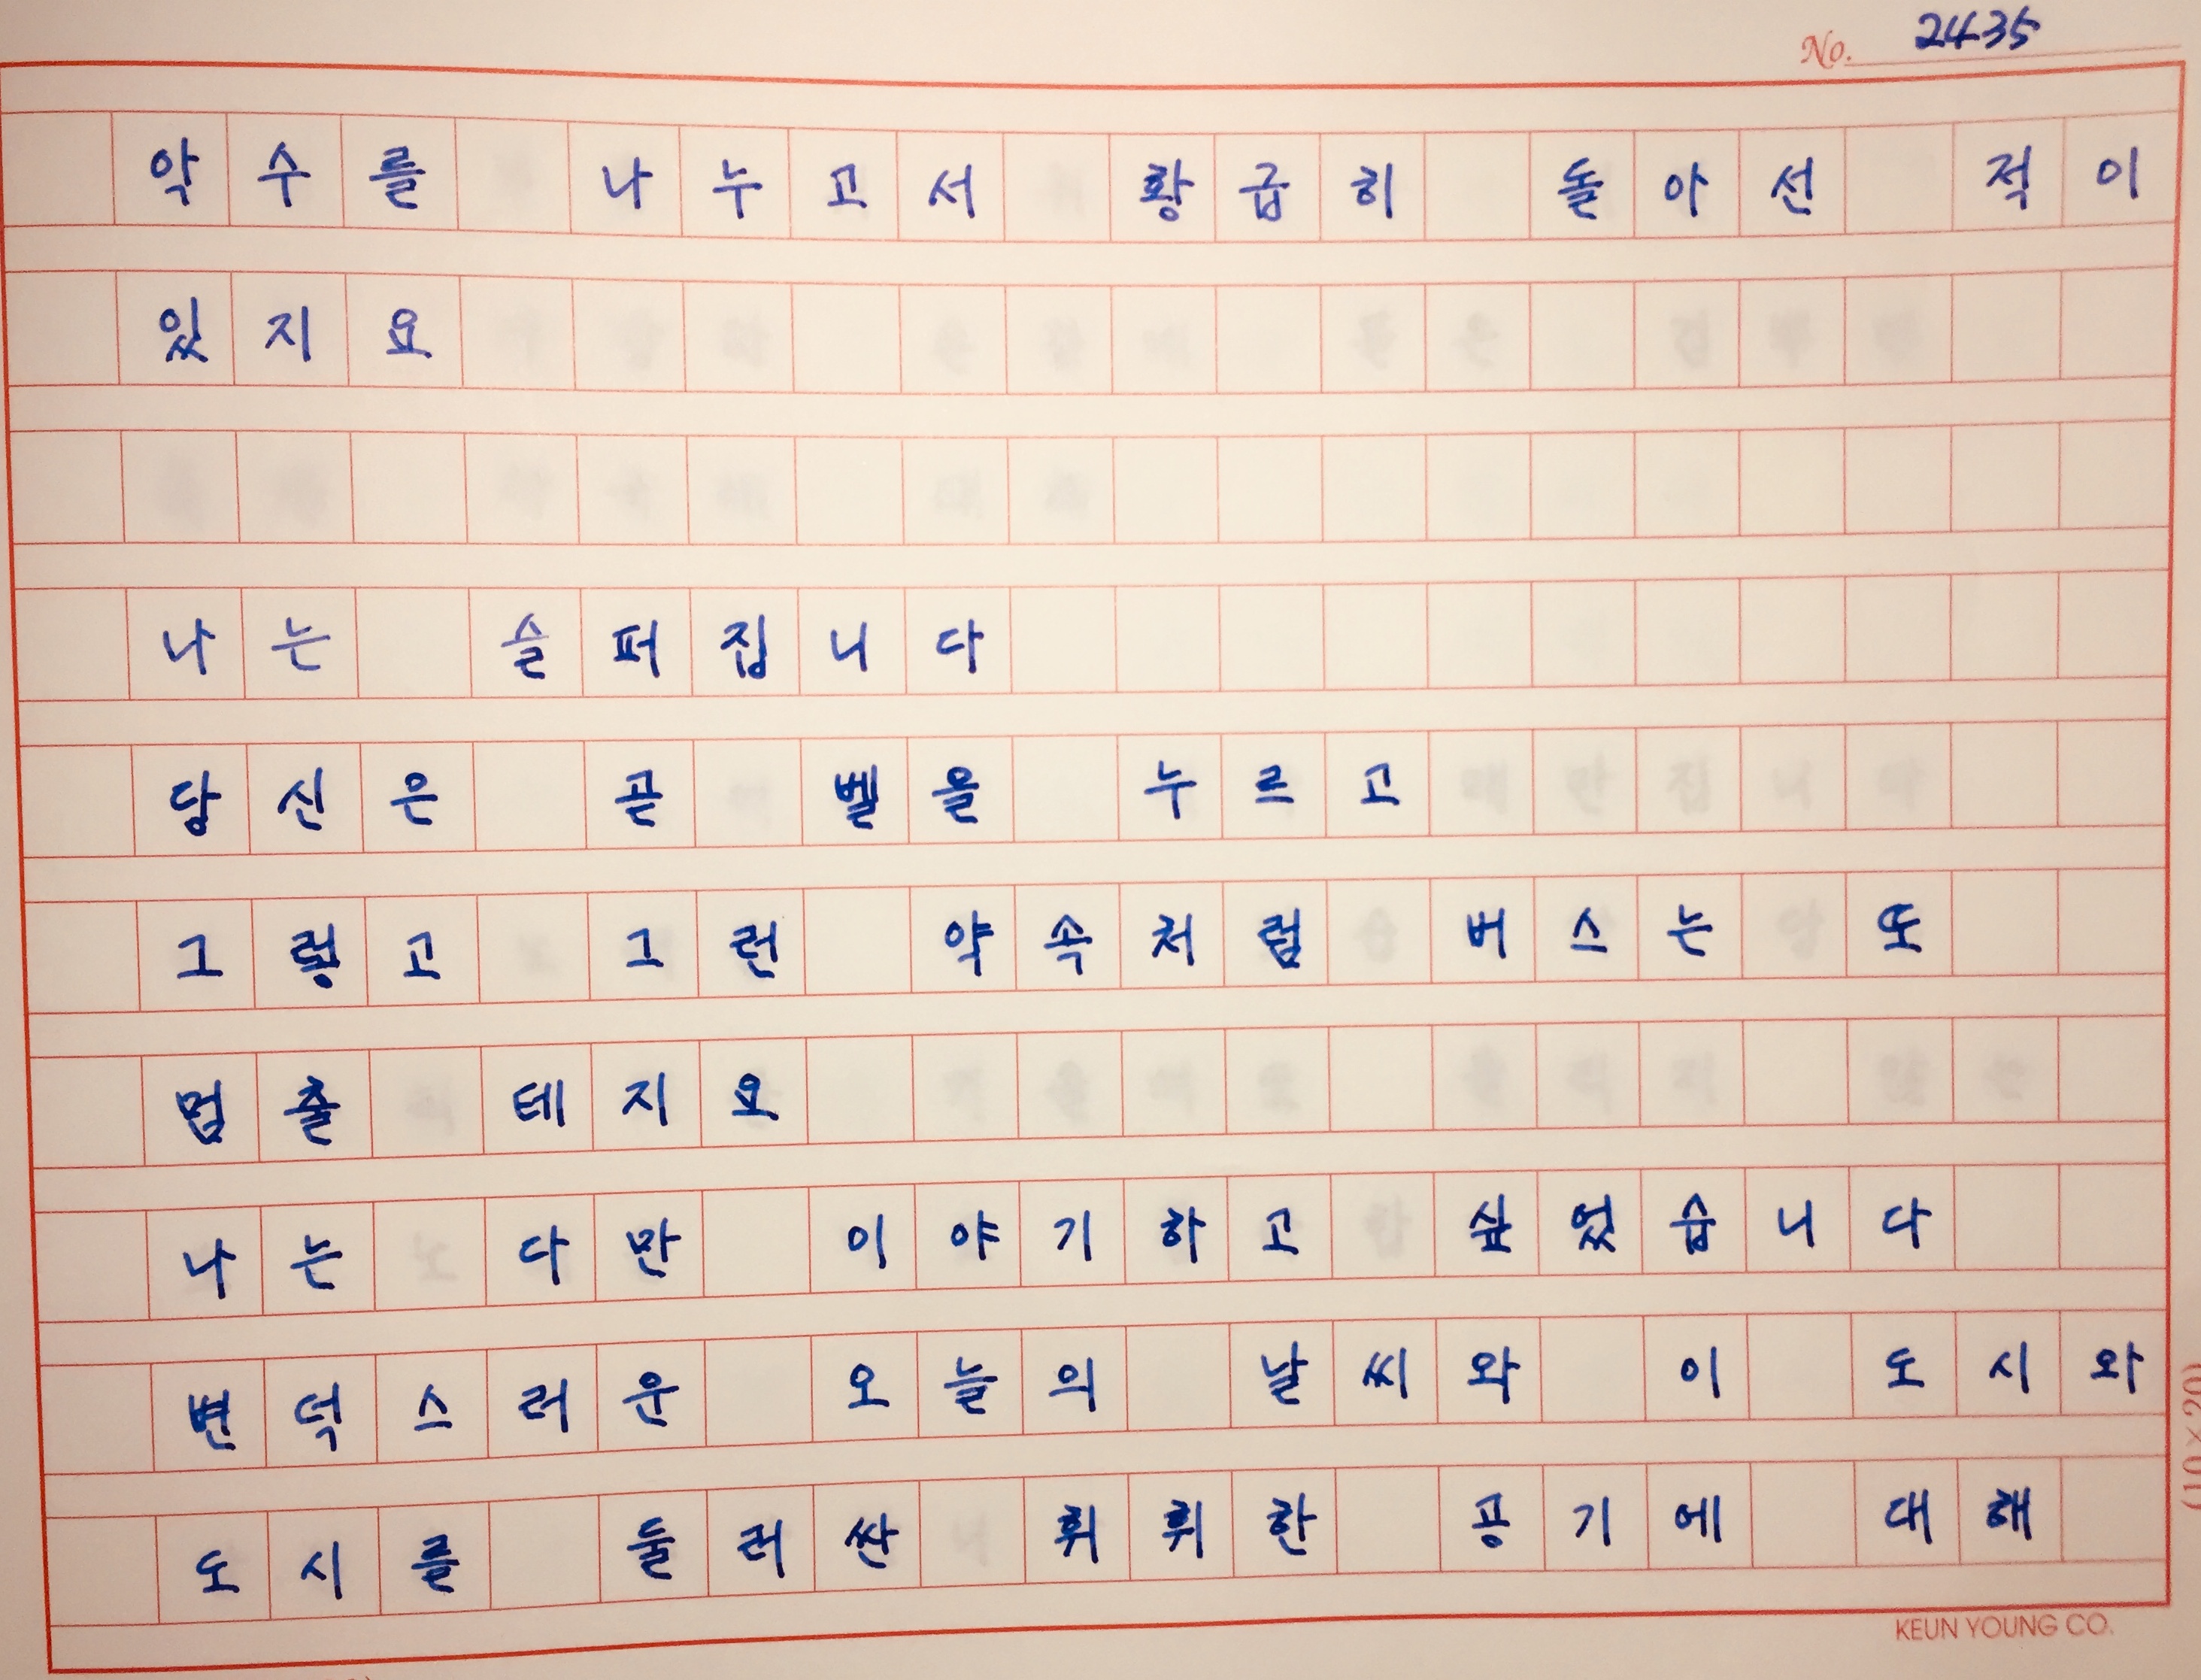 No. 2435
악수를 나누고서 황급히 돌아선 적이
있지요
나는 슬퍼집니다
당신은 곧 벨을 누르고
그렇고 그런 약속처럼 버스는 또
멈출 테지요
나는 다만 이야기하고 싶었습니다
변덕스러운 오늘의 날씨와 이 도시와
도시를 둘러싼 휘휘한 공기에 대해
(10×20)
KEUN YOUNG CO.